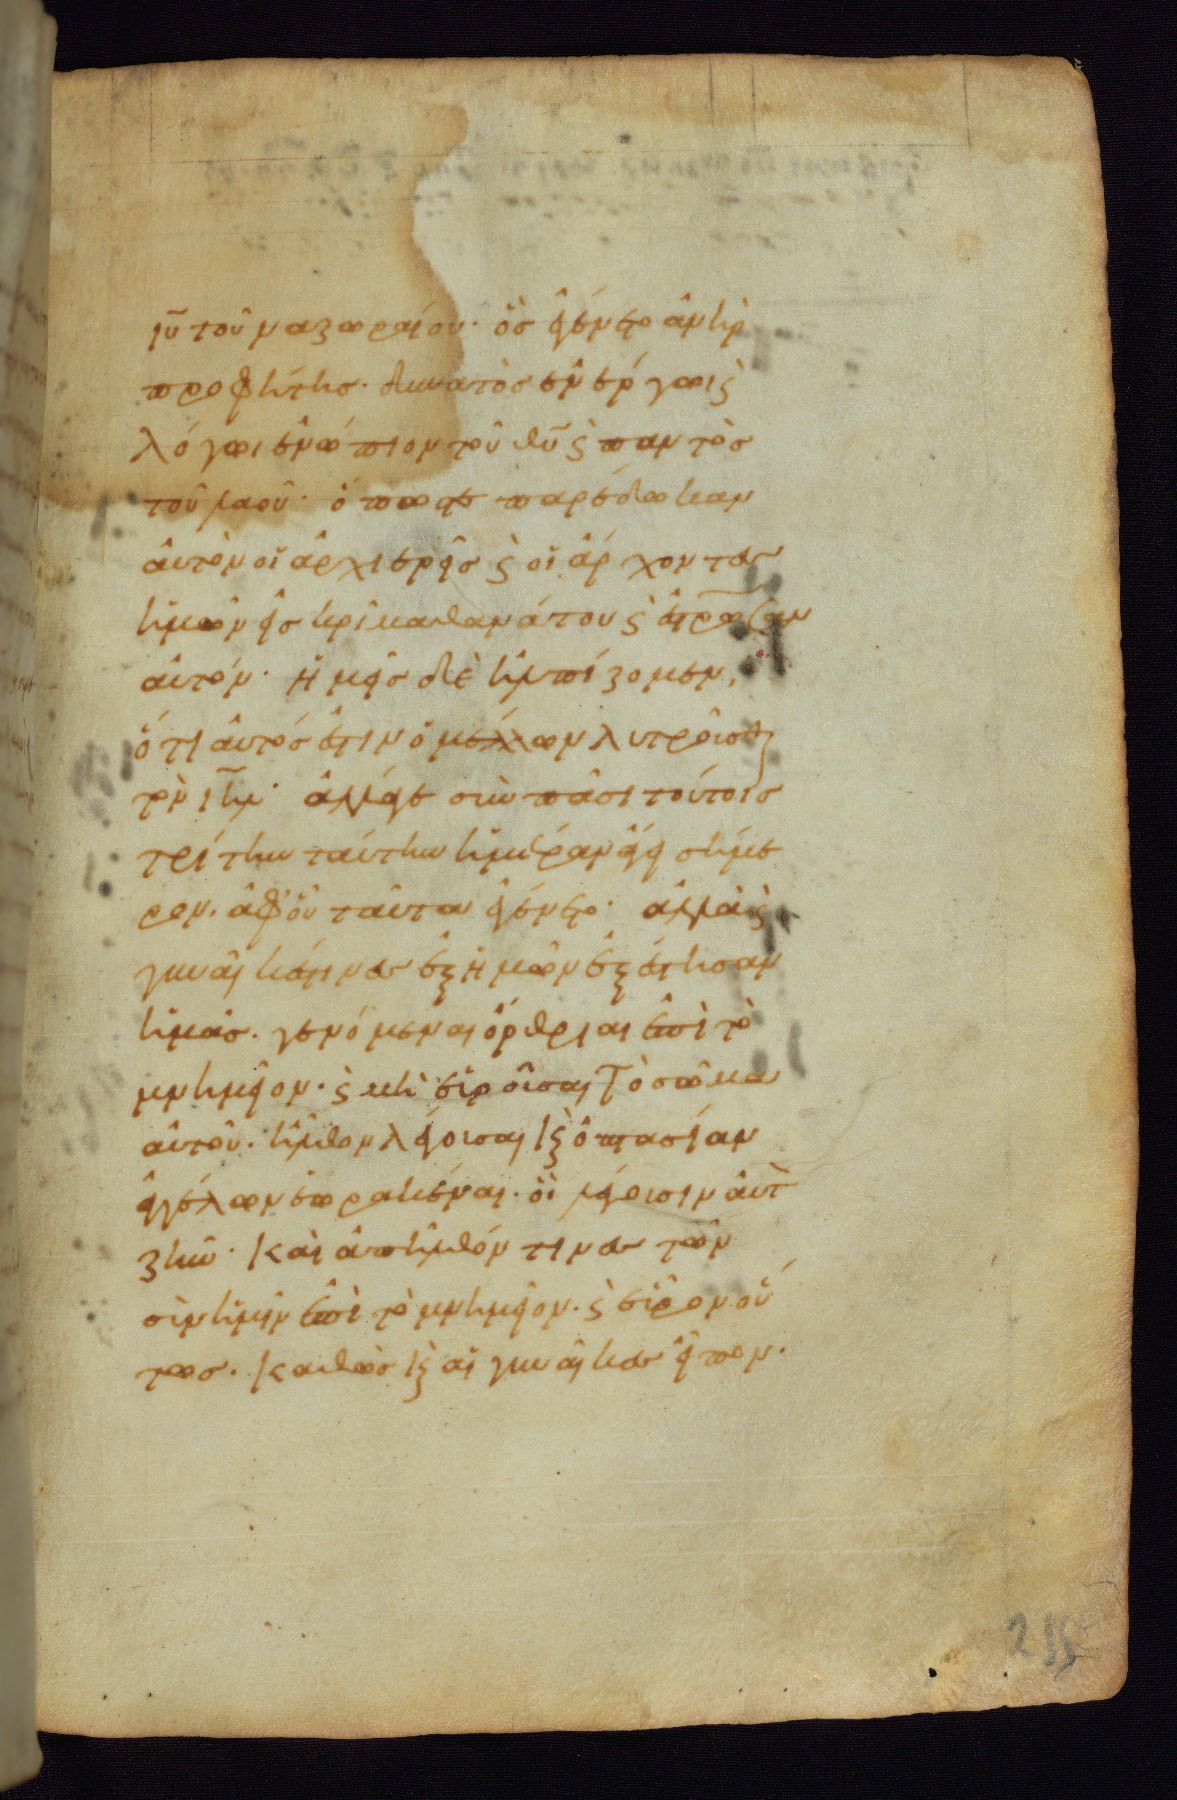 ιυ του ναζωραίου· ὃσ ἐγένετο ἀνὴρ
προφήτησ· δυνατὸσ ἐν ἔργωι ϛ
λόγωι ἐνώπιον τοῦ θυ ϛ παντὸσ
τοῦ λαοῦ· ὅπωστε παρέδωκαν
ἀυτὸν οἱ ἀρχιερεῖσ ϛ οἱ ἄρχοντεσ
ἡμῶν εἰσ κρίμα θανάτου ϛ ἐστρωσαν
ἀυτόν· ἡμεῖσ δὲ ἠλπίζομεν,
ὅτι ἀυτόσ ἐστιν ὁ μέλλων λυτροῦσθαι
τὸν ιηλ· ἀλλάγε σὺν πᾶσι τούτοισ
τρίτην ταύτην ἡμέραν ἄγει σήμε
ρον. ἀφ' οὗ ταῦτα ἐγένετο· ἀλλὰ ϛ
γυναῖκέστινεσ ἐξ ἡμῶν ἐξέστησαν
ἡμᾶσ. γενόμεναι ὄρθριαι ἐπὶ τὸ
μνημεῖον· ϛ μὴ εὑροῦσαι τὸ σῶμα
ἀυτοῦ. ἦλθον λέγουσαι κ ὀπτασίαν
ἀγγέλων ἑωρακέναι. οἳ λέγουσιν ἀυτὸ
ζῆν· και ἀπῆλθόν τινεσ τῶν
σὺν ἡμῖν ἐπὶ τὸ μνημεῖον. ϛ εὗρον οὕ
τωσ. καθὼσ κ αἱ γυναῖκεσ εἶπον.
255